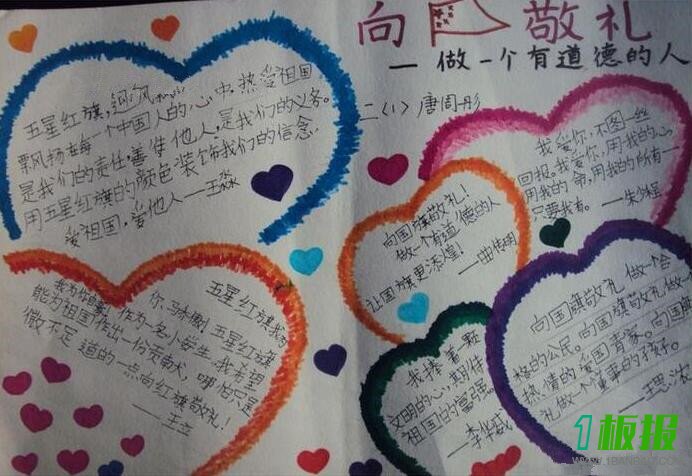 向 敬礼
— 做一个有道德的人
二(1) 唐周彤
五星红旗,迎风
飘风扬在每一个中国人的心中,热爱祖国
是我们的责任,善待他人,是我们的义务。
用五星红旗的颜色装饰我们的信念.
爱祖国,爱他人——王淼
我爱你,不图一丝
回报。我爱你,用我的心
用我的命,用我的所有——
只要我有。
向国旗敬礼!
做一个有道德的人
让国旗更添煌!
五星红旗我为
你马木傲!五星红旗
我为你自豪,作为一名小学生.我希望
能为祖国作出一份贡献,哪怕只是
微不足道的一点向红旗敬礼!
——王立
我捧着颗
文明的心,期伴
祖国旧的富强
向国旗敬礼 做一个合
格的公民。向国旗敬礼做一
热情的爱国青家。向国旗
礼做一个懂事的好孩子。
1板报
WWW.1BANBAO.COM